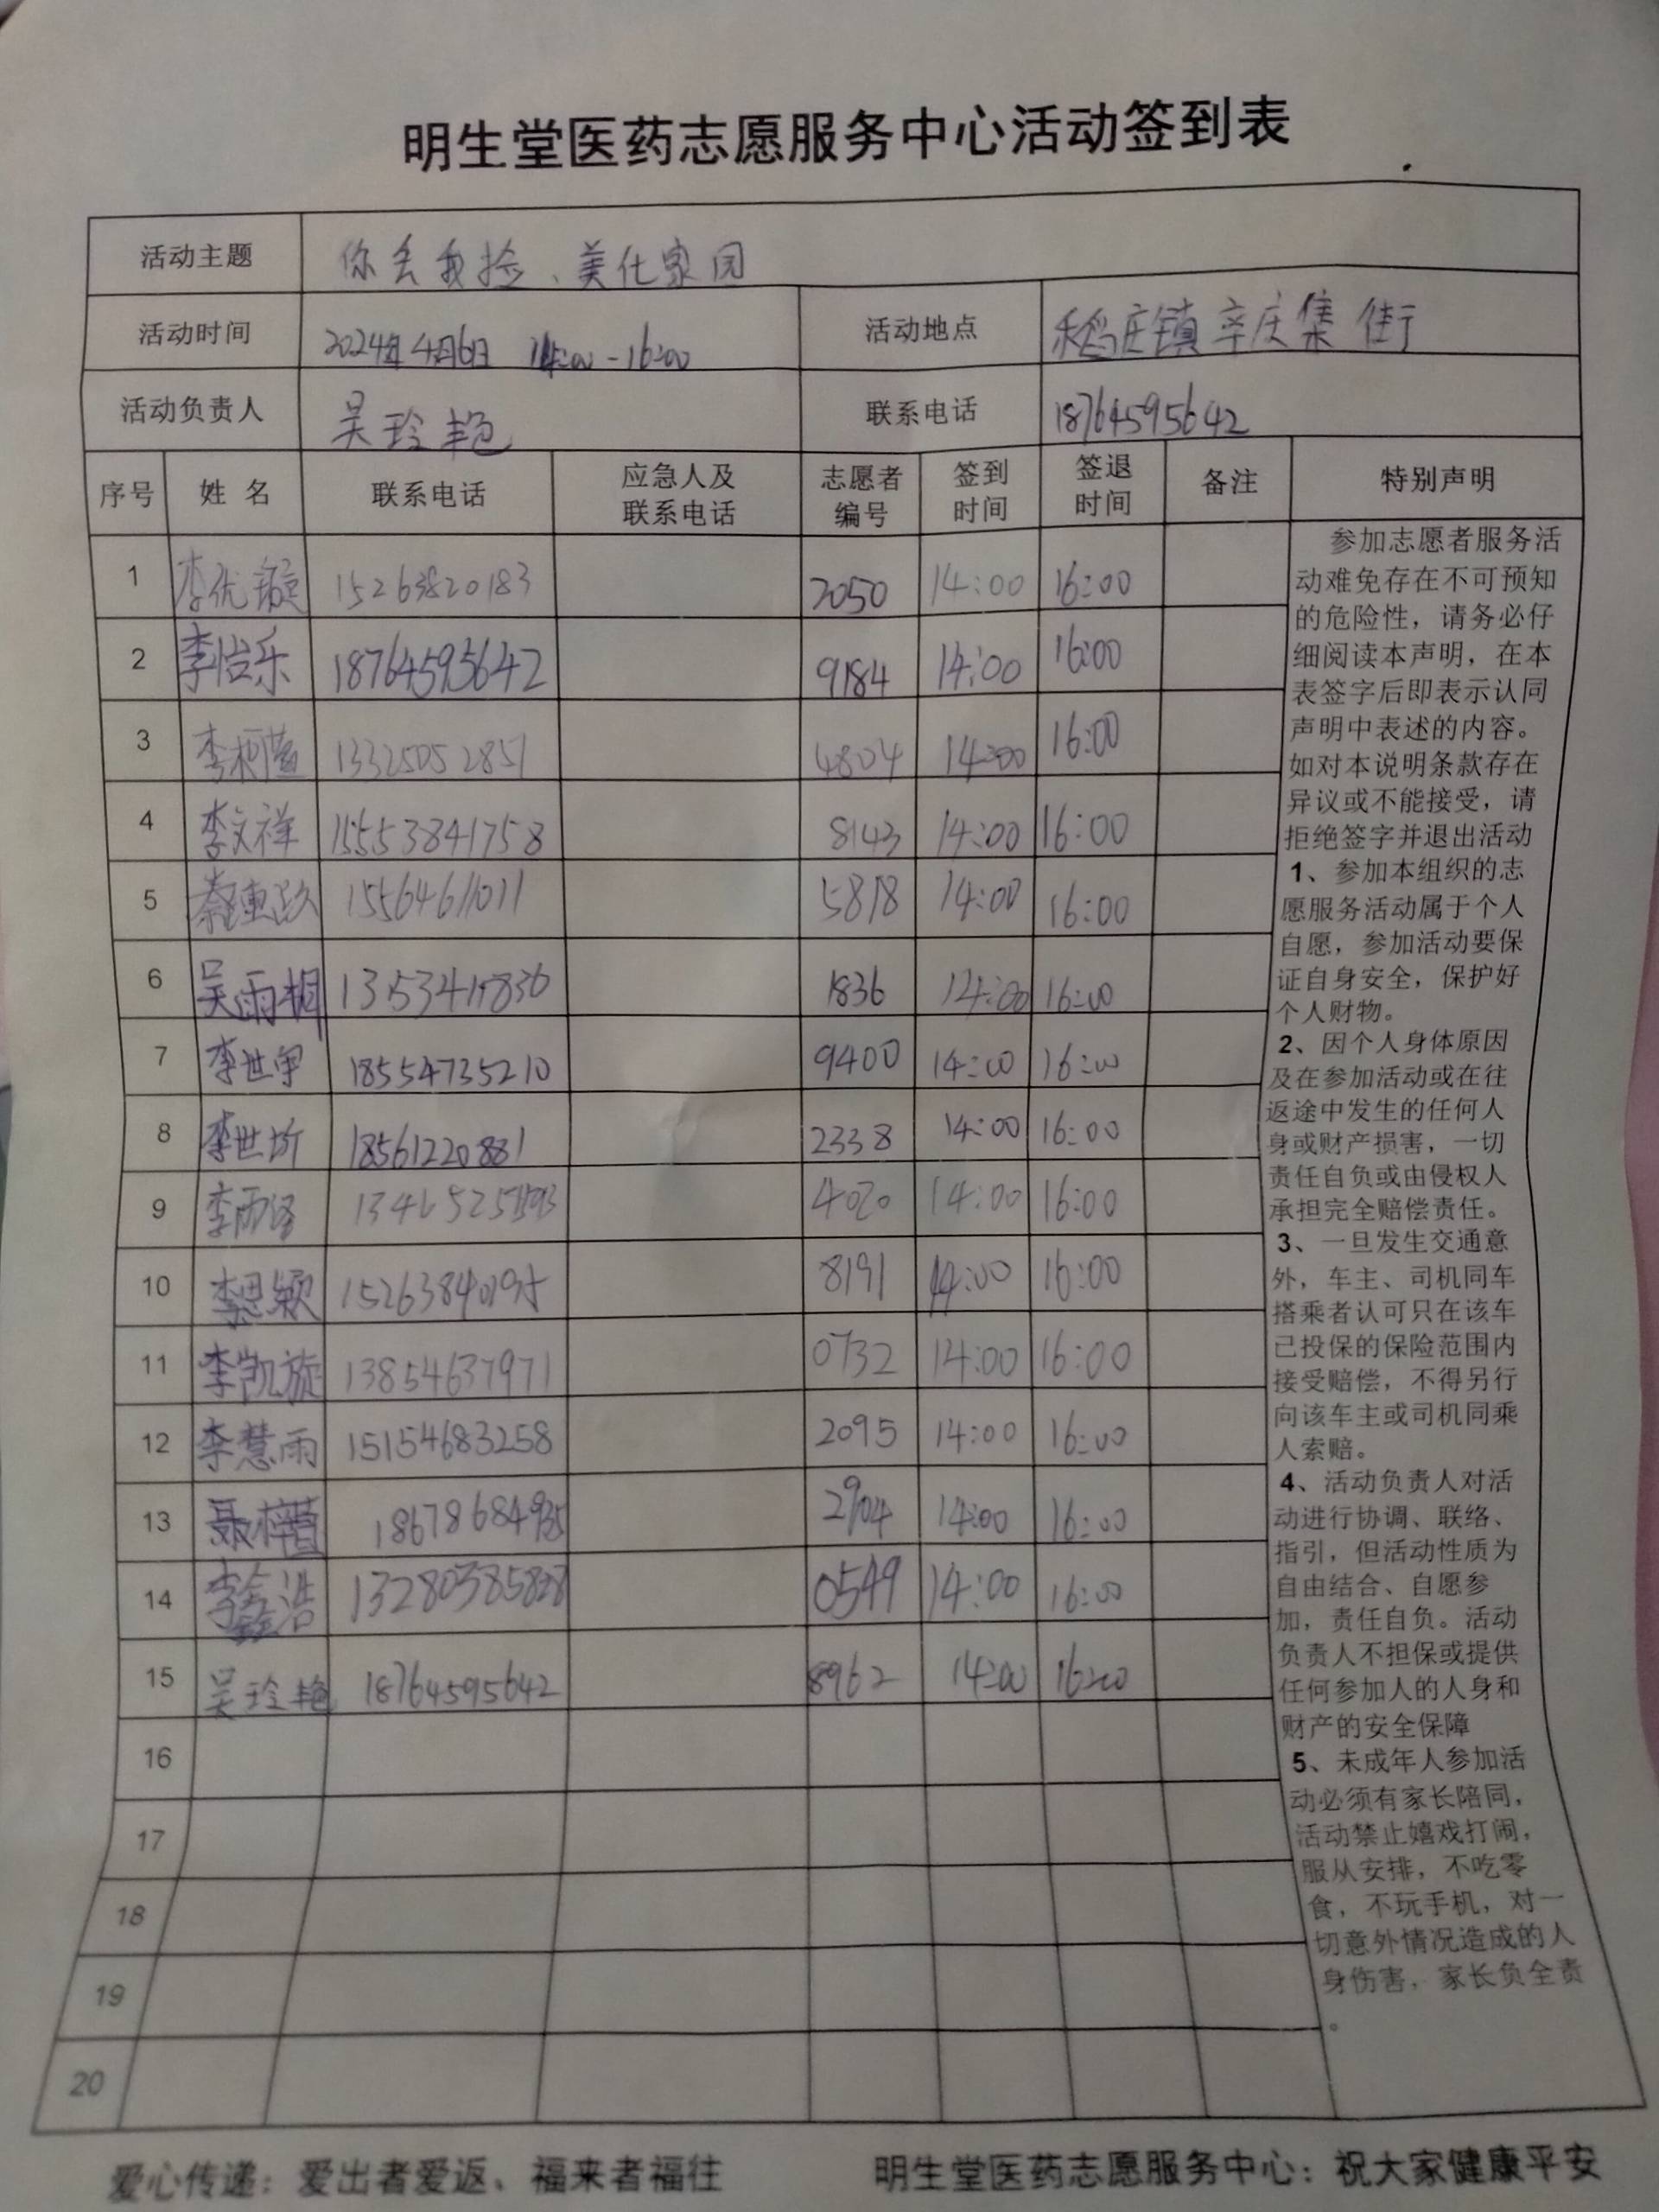 明生堂医药志愿服务中心活动签到表
活动主题 你丢我捡、美化家园
活动时间 2024年4月6日 14:00-16:00 活动地点 稻庄镇辛庄集街
活动负责人 吴玲艳 联系电话 18764595642
序号 姓名 联系电话 应急人及联系电话 志愿者编号 签到时间 签退时间 备注 特别声明
1 李优璇 15263820183 2050 14:00 16:00
2 李怡乐 18764595642 9184 14:00 16:00
3 13325052851 4804 14:00 16:00
4 李文祥 15553841758 8143 14:00 16:00
5 15564611011 5818 14:00 16:00
6 吴雨桐 1836 14:00 16:00
7 李世宇 18554735210 9400 14:00 16:00
8 李世圻 18561220881 2338 14:00 16:00
9 4020 14:00 16:00
10 李思颖 8191 14:00 16:00
11 李凯旋 13854637971 0732 14:00 16:00
12 李慧雨 15154683258 2095 14:00 16:00
13 2904 14:00 16:00
14 0549 14:00 16:00
15 吴玲艳 18764595642 8962 14:00 16:00
16
17
18
19
20
参加志愿者服务活
动难免存在不可预知
的危险性，请务必仔
细阅读本声明，在本
表签字后即表示认同
声明中表述的内容。
如对本说明条款存在
异议或不能接受，请
拒绝签字并退出活动
1、参加本组织的志
愿服务活动属于个人
自愿，参加活动要保
证自身安全，保护好
个人财物。
2、因个人身体原因
及在参加活动或在往
返途中发生的任何人
身或财产损害，一切
责任自负或由侵权人
承担完全赔偿责任。
3、一旦发生交通意
外，车主、司机同车
搭乘者认可只在该车
已投保的保险范围内
接受赔偿，不得另行
向该车主或司机同乘
人索赔。
4、活动负责人对活
动进行协调、联络、
指引，但活动性质为
自由结合、自愿参
加，责任自负。活动
负责人不担保或提供
任何参加人的人身和
财产的安全保障
5、未成年人参加活
动必须有家长陪同，
活动禁止嬉戏打闹，
服从安排，不吃零
食，不玩手机，对一
切意外情况造成的人
身伤害，家长负全责
。
爱心传递：爱出者爱返、福来者福往 明生堂医药志愿服务中心：祝大家健康平安